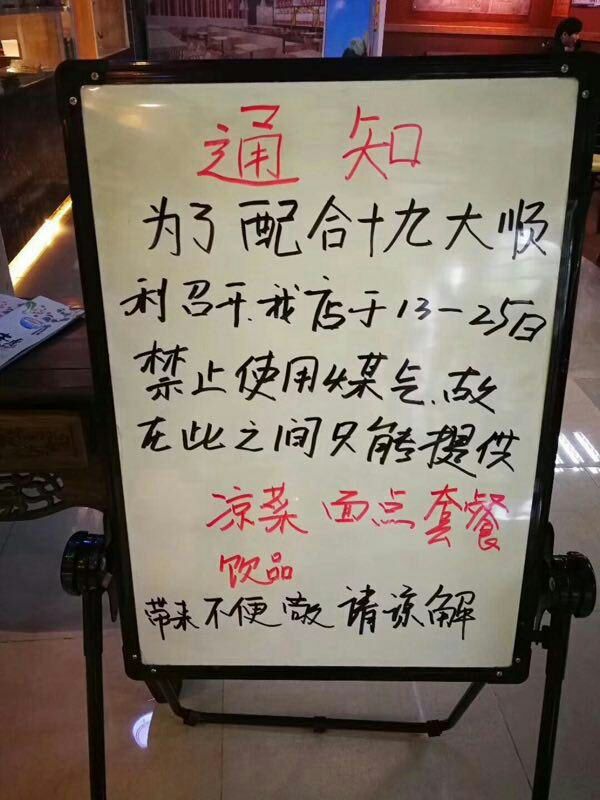 通知
为了配合十九大顺
利召开.我店于13-25日
禁止使用煤气.故
在此之间只能提供
凉菜 面点 套餐
饮品
带来不便敬请谅解